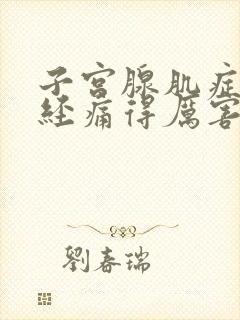 子宫腺肌症
经痛得厉害
劉春瑞